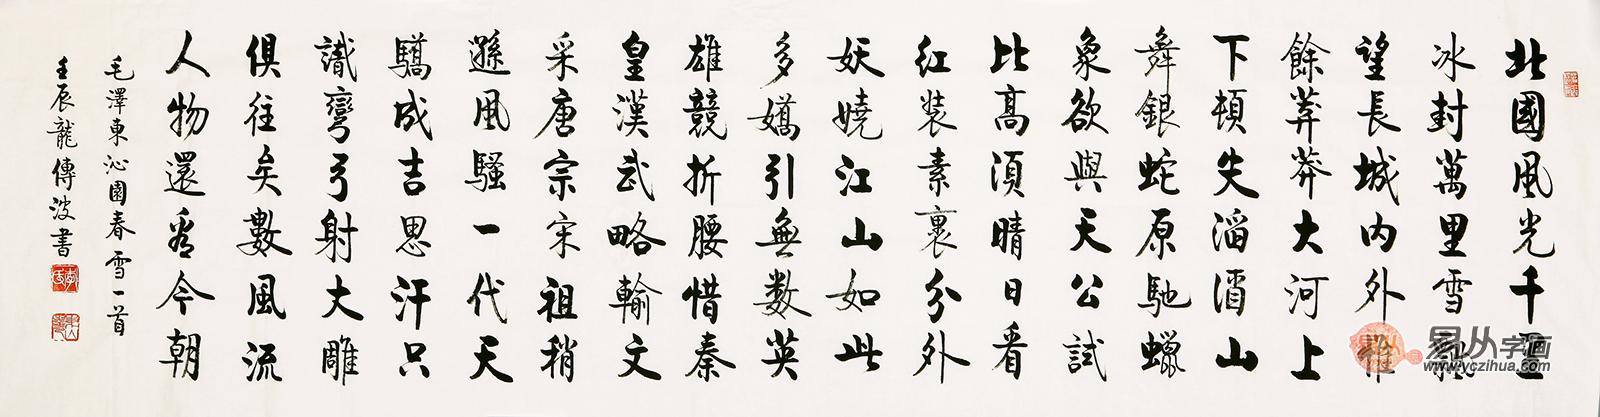 北國風光千里
冰封萬里雪飄
望長城内外惟
餘莽莽大河上
下頓失滔滔山
舞銀蛇原馳蠟
象欲與天公試
比高須晴日看
紅装素裹分外
妖嬈江山如此
多嬌引無数英
雄競折腰惜秦
皇漢武略輸文
采唐宗宋祖稍
遜風騷一代天
驕成吉思汗只
識彎弓射大雕
俱往矣數風流
人物還看今朝
毛澤東沁園春雪一首
壬辰龍傳波書
易从字画
www.yczihua.com